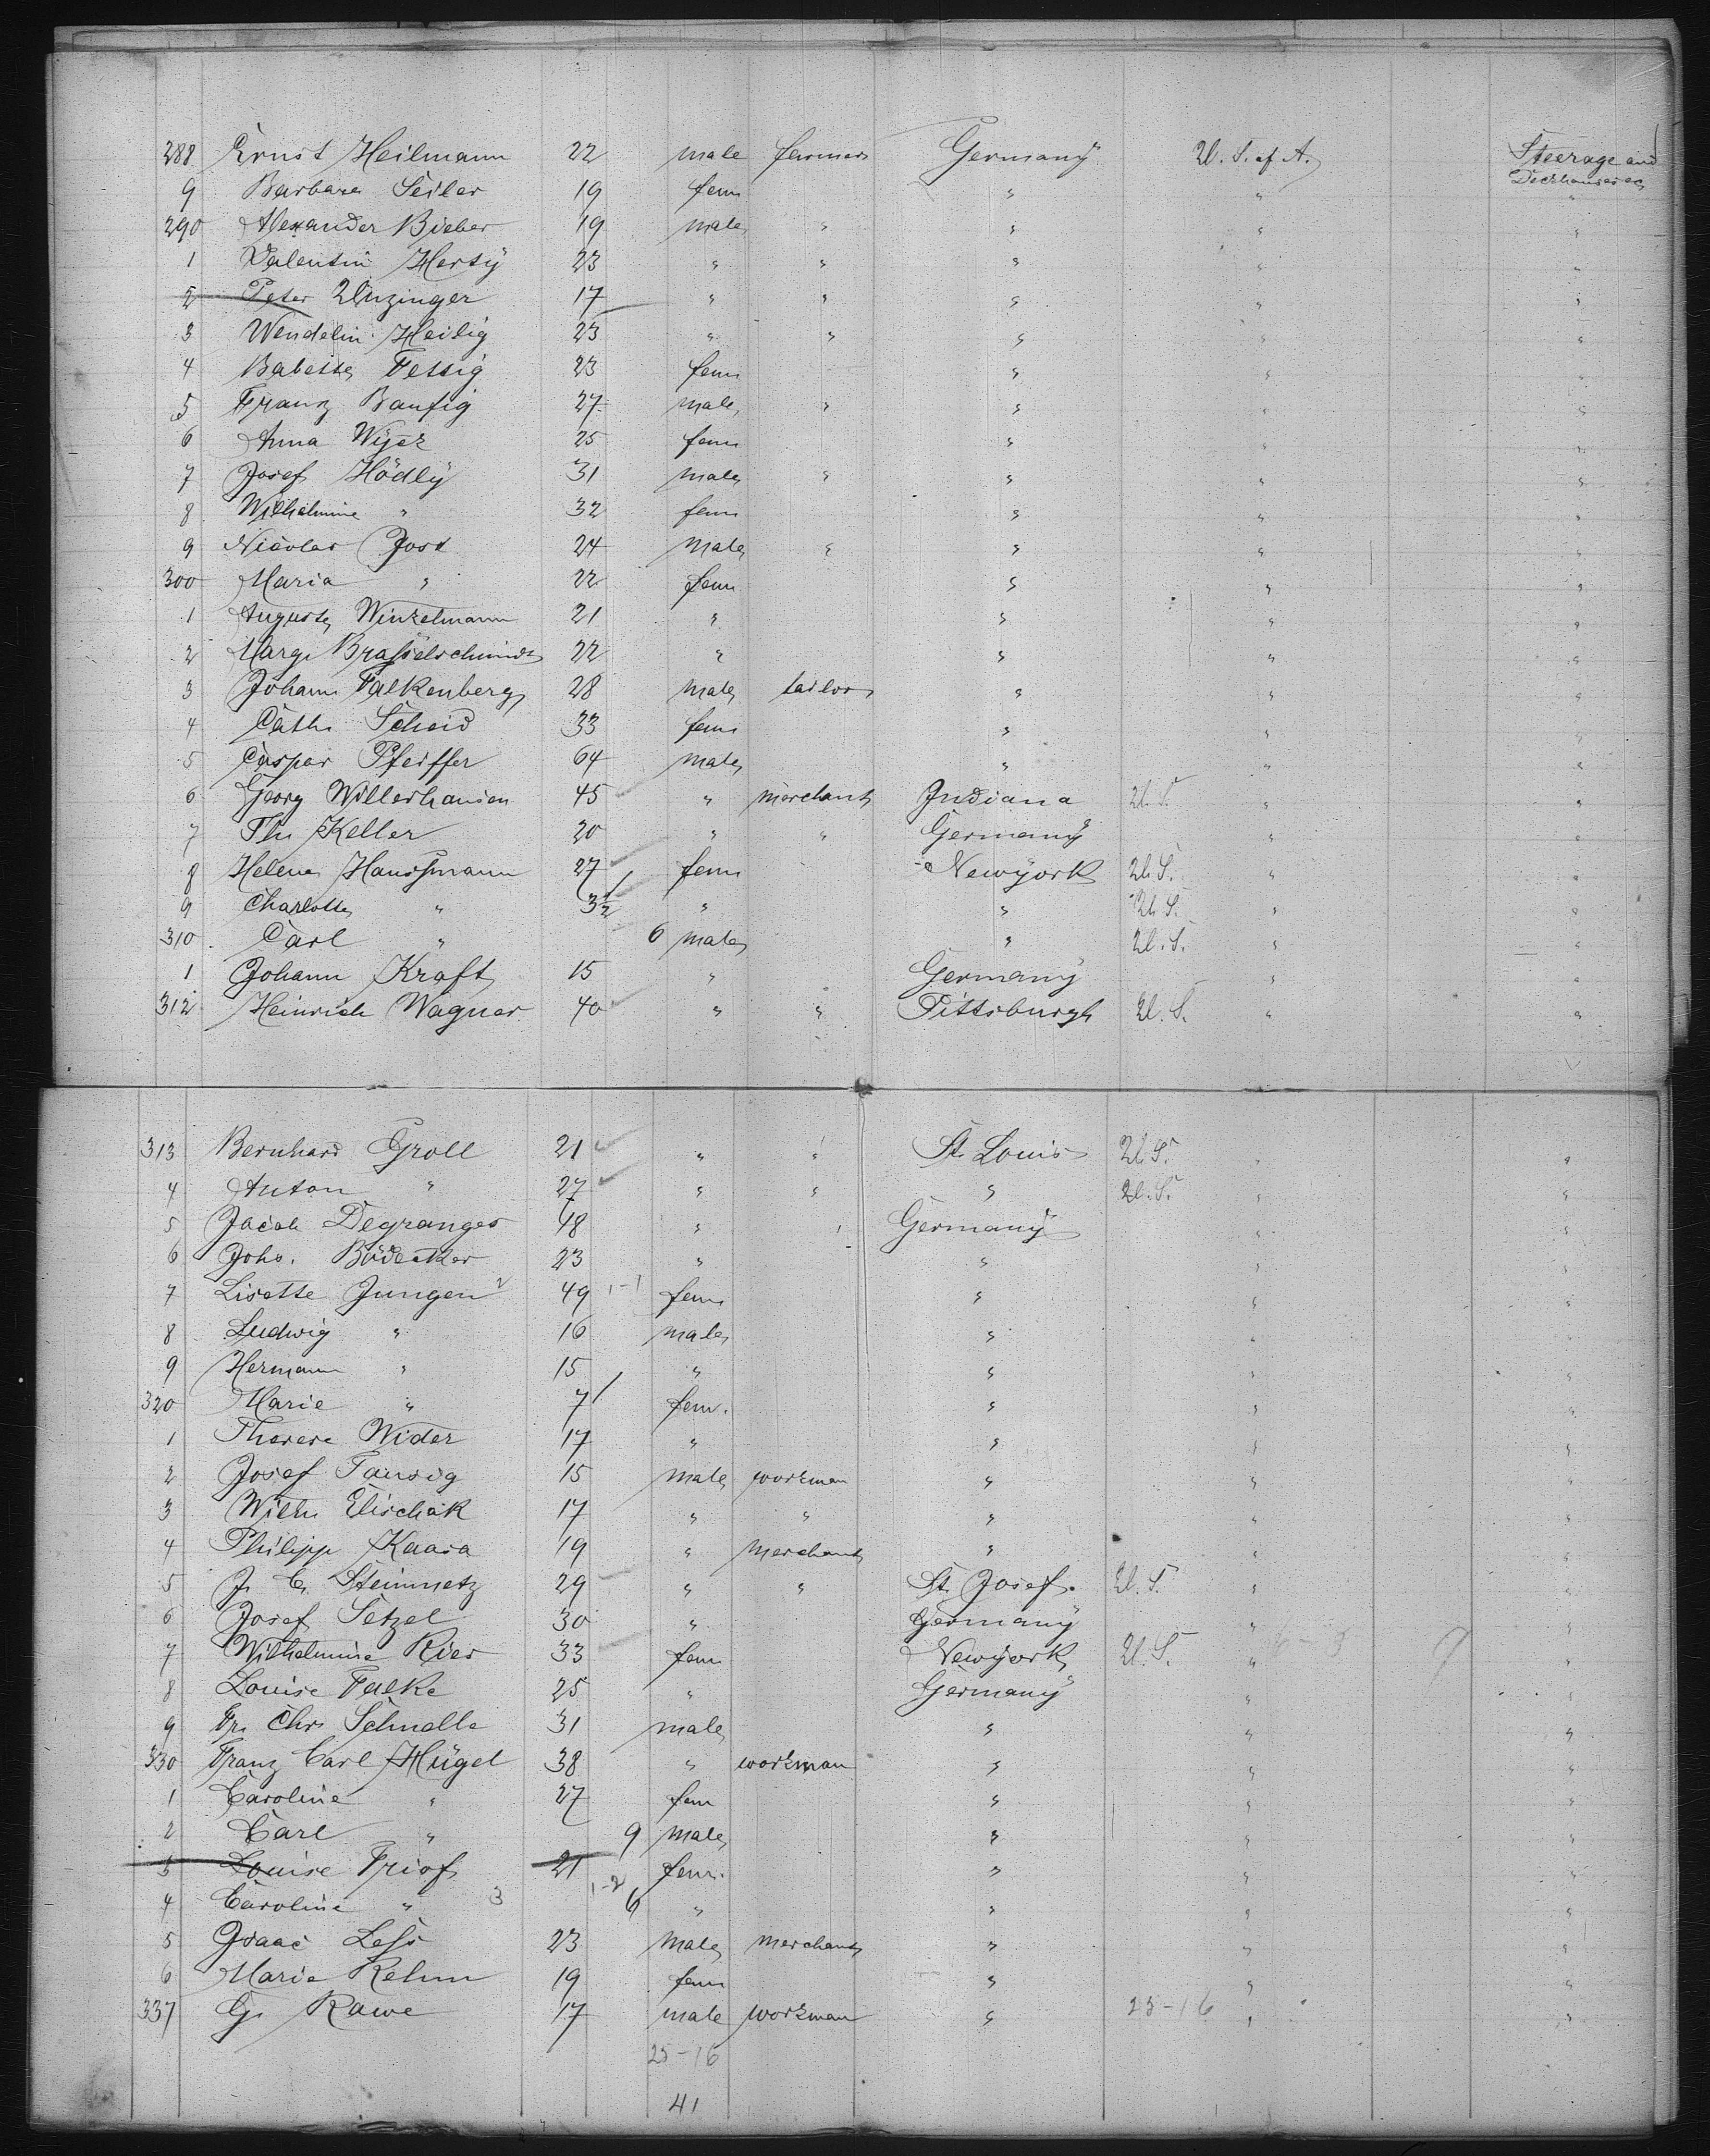 288 Ernst Heilmann 22 male farmer Germany U. S. of A. Steerage and
9 Barbara Seiler 19 fem " " "
290 Alexander Bieber 19 male " " " "
1 Valentin Herty 23 " " " " "
2 Peter Unzinger 17 " " " " "
3 Wendelin Heilig 23 " " " " "
4 Babette Fettig 23 fem " " "
5 Franz Banfig 27 male " " " "
6 Anna Wyez 25 fem " " "
7 Josef Hödly 31 male " " " "
8 Wilhelmine " 32 fem " " "
9 Nicolas Jost 24 male " " " "
300 Maria " 22 fem " " "
1 Auguste Winkelmann 21 " " " "
2 Marg. Brasselschmidt 22 " " " "
3 Johann Falkenberg 28 male tailor " " "
4 Cath. Scheid 33 fem " " "
5 Caspar Pfeiffer 64 male " " "
6 Georg Willerhausen 45 " merchant Indiana U. S. " "
7 Th. Keller 20 " " Germany " "
8 Helene Haussmann 27 fem Newyork U. S. " "
9 Charlotte " 3½ " " U. S. " "
310 Carl " 6 male " U. S. " "
1 Johann Kraft 15 " Germany " "
312 Heinrich Wagner 40 " " Pittsburgh U. S. " "
313 Bernhard Groll 21 " " St. Louis U. S. " "
4 Anton " 27 " " " U. S. " "
5 Jacob Degranges 48 " " Germany " "
6 Johs. Bödecker 23 " " " "
7 Lisette Jungen 49 1-1 fem " " "
8 Ludwig " 16 male " " "
9 Hermann " 15 " " " "
320 Marie " 7 fem. " " "
1 Therese Wider 17 " " " "
2 Josef Tausig 15 male workman " " "
3 Wilh. Elischak 17 " " " " "
4 Philipp Kaara 19 " merchant " " "
5 J. C. Steinmetz 29 " " St. Josef. U. S. " "
6 Josef Setzel 30 " Germany " "
7 Wilhelmine Rier 33 fem Newyork U. S. " "
8 Louise Falke 25 " Germany " "
9 Fr. Chr. Schnelle 31 male " " "
330 Franz Carl Hügel 38 " workman " " "
1 Caroline " 27 fem " " "
2 Carl " 9 male " " "
3 Louise Friof 21 fem. " " "
4 Caroline " 3 1-2 6 " " " "
5 Isaac Less 23 male merchant " " "
6 Marie Rehm 19 fem " " "
337 G. Rawe 17 male workman " 25-16 " "
25-16
41